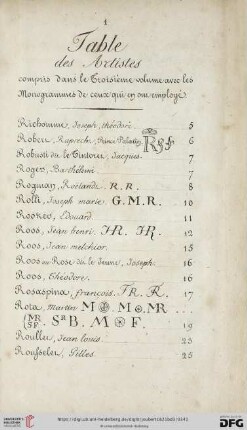 1
Table
des Artistes
compris dans le Troisième volume avec les
Monogrammes de ceux qui en ont employé
Richomme, Joseph, théodore. 5
Robert, Ruprecht, Prince Palatin 6
Robusti dit le Tintoret, Jacques. 7
Roger, Barthélemi 7
Rogman, Roelande. R. R. 8
Rolli, Joseph marie G.M.R. 10
Rooker, Edouard 11
Roos, Jean henri. HR. HR. 12
Roos, Jean melchior. 15
Roos ou Rose dit le Jeune, Joseph. 16
Roos, Théodore. 16
Rosaspina, françois. FR. R. 17
Rota, Martin M
MR SF. SRB. M F. 19
Roullet, Jean louis. 23
Rousselet, Gilles 25
https://digi.ub.uni-heidelberg.de/diglit/joubert1821bd3/0345
DFG